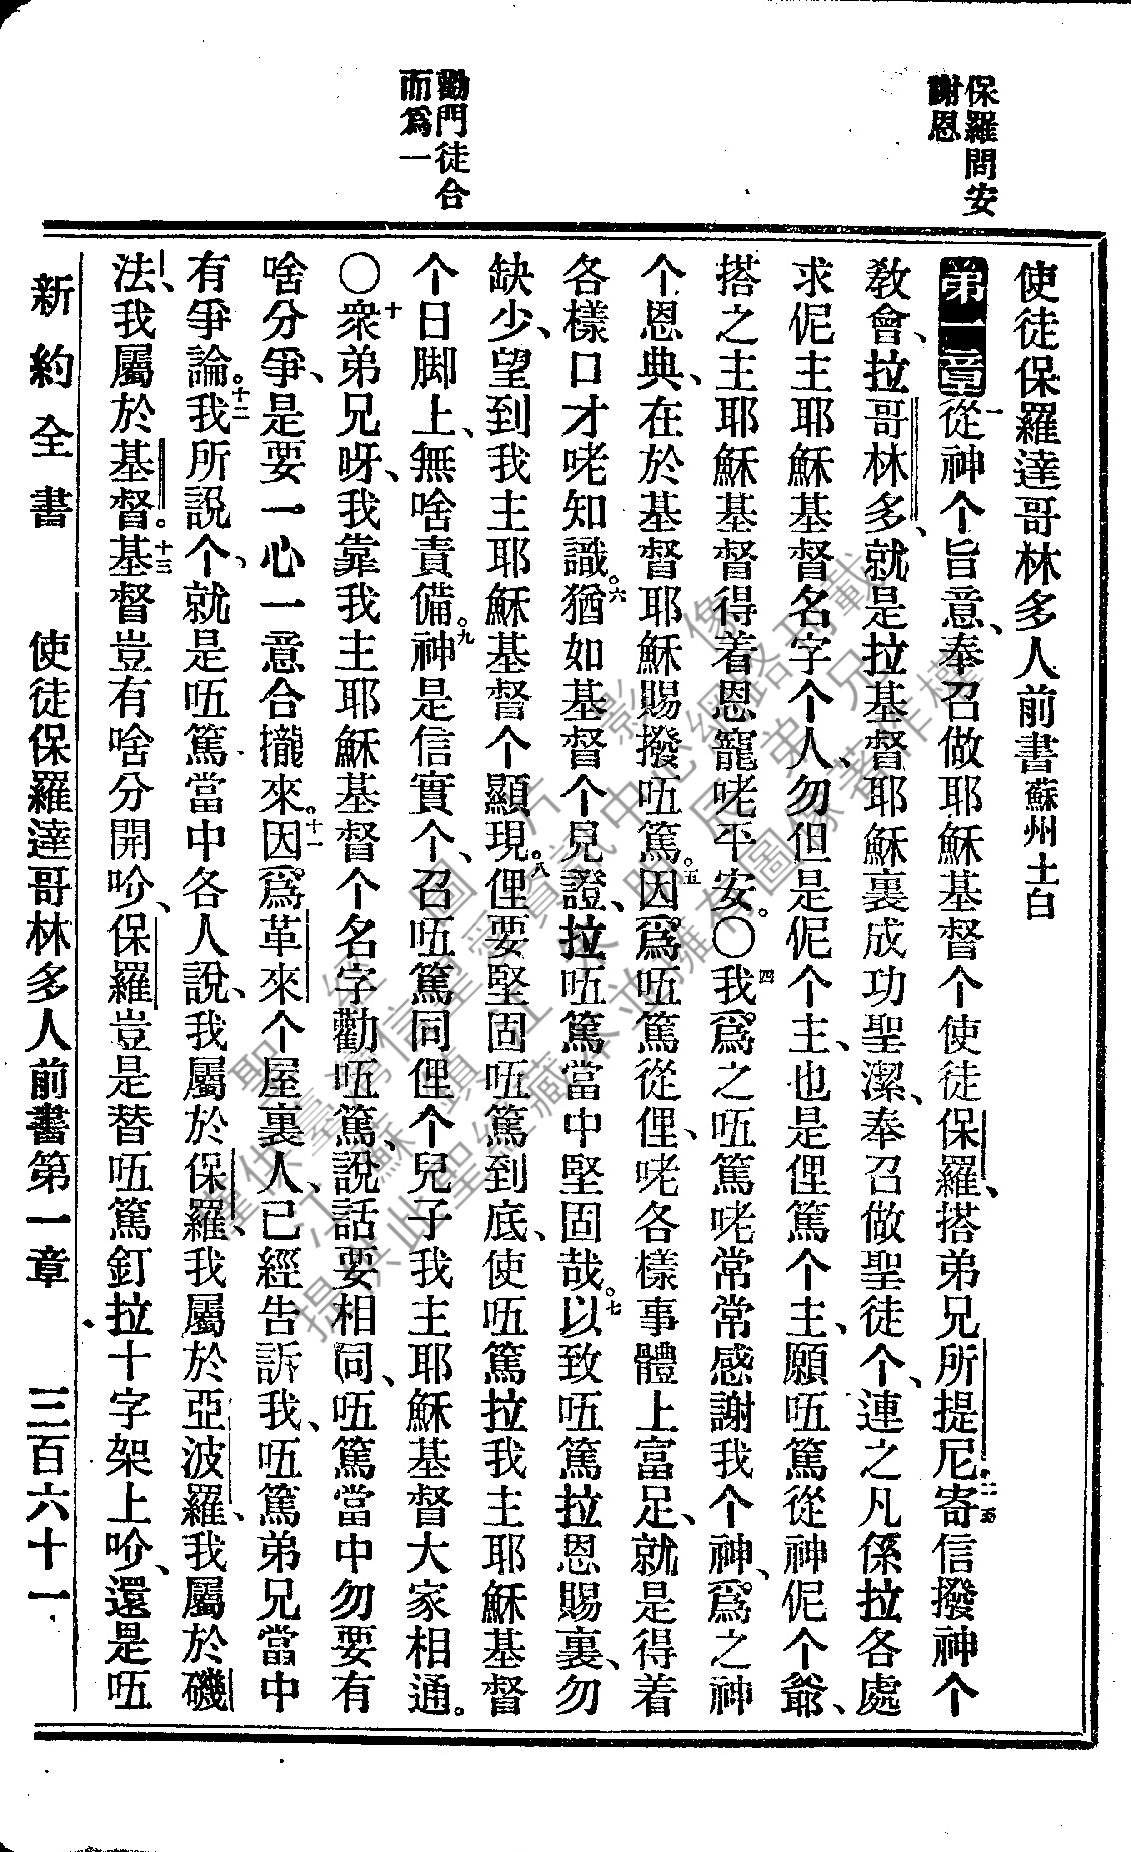 保羅問安
謝恩
勸門徒合
而爲一
使徒保羅達哥林多人前書蘇州土白
第一章一從神个旨意、奉召做耶穌基督个使徒保羅、搭弟兄所提尼、二寄信撥神个
教會、拉哥林多、就是拉基督耶穌裏成功聖潔、奉召做聖徒个、連之凡係拉各處
求伲主耶穌基督名字个人、勿但是伲个主、也是俚篤个主、三願㕶篤從神伲个爺、
搭之主耶穌基督得着恩寵咾平安。〇四我爲之㕶篤咾常常感謝我个神、爲之神
个恩典、在於基督耶穌賜撥㕶篤。五因爲㕶篤從俚、咾各樣事體上富足、就是得着
各樣口才咾知識。六猶如基督个見證、拉㕶篤當中堅固哉。七以致㕶篤拉恩賜裏、勿
缺少、望到我主耶穌基督个顯現。八俚要堅固㕶篤到底、使㕶篤拉我主耶穌基督
个日脚上、無啥責備。九神是信實个、召㕶篤同俚个兒子我主耶穌基督大家相通。
〇十衆弟兄呀、我靠我主耶穌基督个名字勸㕶篤、說話要相同、㕶篤當中勿要有
啥分爭、是要一心一意合攏來。十一因爲革來个屋裏人、已經告訴我、㕶篤弟兄當中
有爭論。十二我所說个、就是㕶篤當中各人說、我屬於保羅、我屬於亞波羅、我屬於磯
法、我屬於基督。十三基督豈有啥分開吤、保羅豈是替㕶篤釘拉十字架上吤、還是㕶
新約全書 使徒保羅達哥林多人前書第一章 三百六十一
聖經圖片影像
僅供臺灣信望愛資訊中心網路刊載
江蘇鎮江人閒民弟兄
提供此聖經藏本並擁有圖像著作權